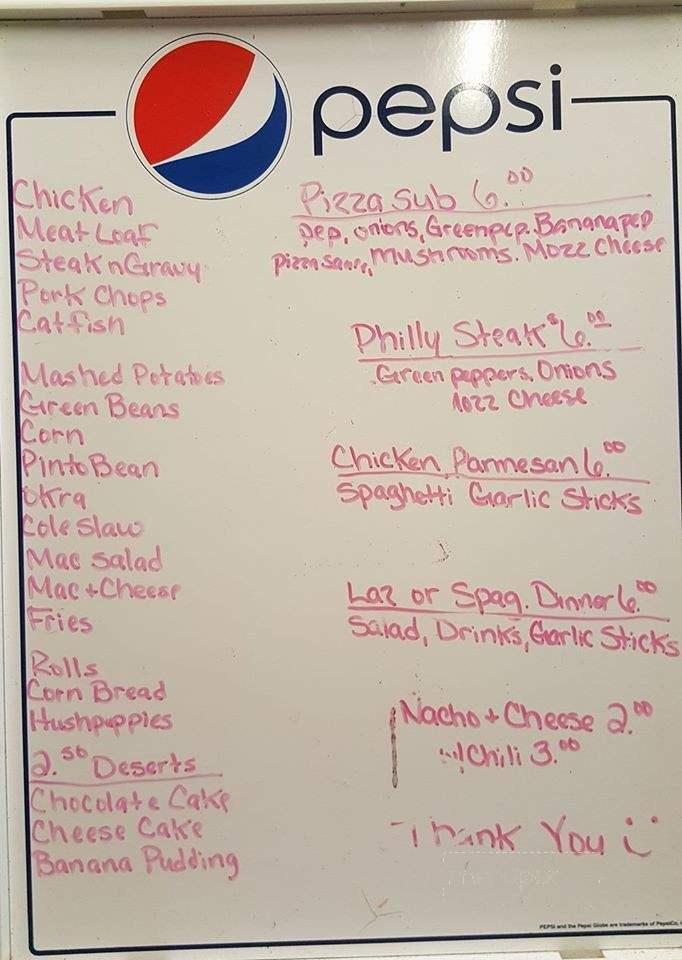 pepsi
Chicken
Meat Loaf
Steak n Gravy
Pork Chops
Catfish
Mashed Potatoes
Green Beans
Corn
Pinto Bean
Okra
Cole Slaw
Mac Salad
Mac + Cheese
Fries
Rolls
Corn Bread
Hushpuppies
2.50 Deserts
Chocolate Cake
Cheese Cake
Banana Pudding
Pizza Sub 6.00
pep, onions, Greenpep. Bananapep
pizza sauce, mushrooms. Mozz Cheese
Philly Steak $6.00
Green peppers, Onions
Mozz Cheese
Chicken Parmesan 6.00
Spaghetti Garlic Sticks
Laz or Spag. Dinner 6.00
Salad, Drinks, Garlic Sticks
Nacho + Cheese 2.00
w/ Chili 3.00
Thank You
PEPSI and the Pepsi Globe are trademarks of PepsiCo,